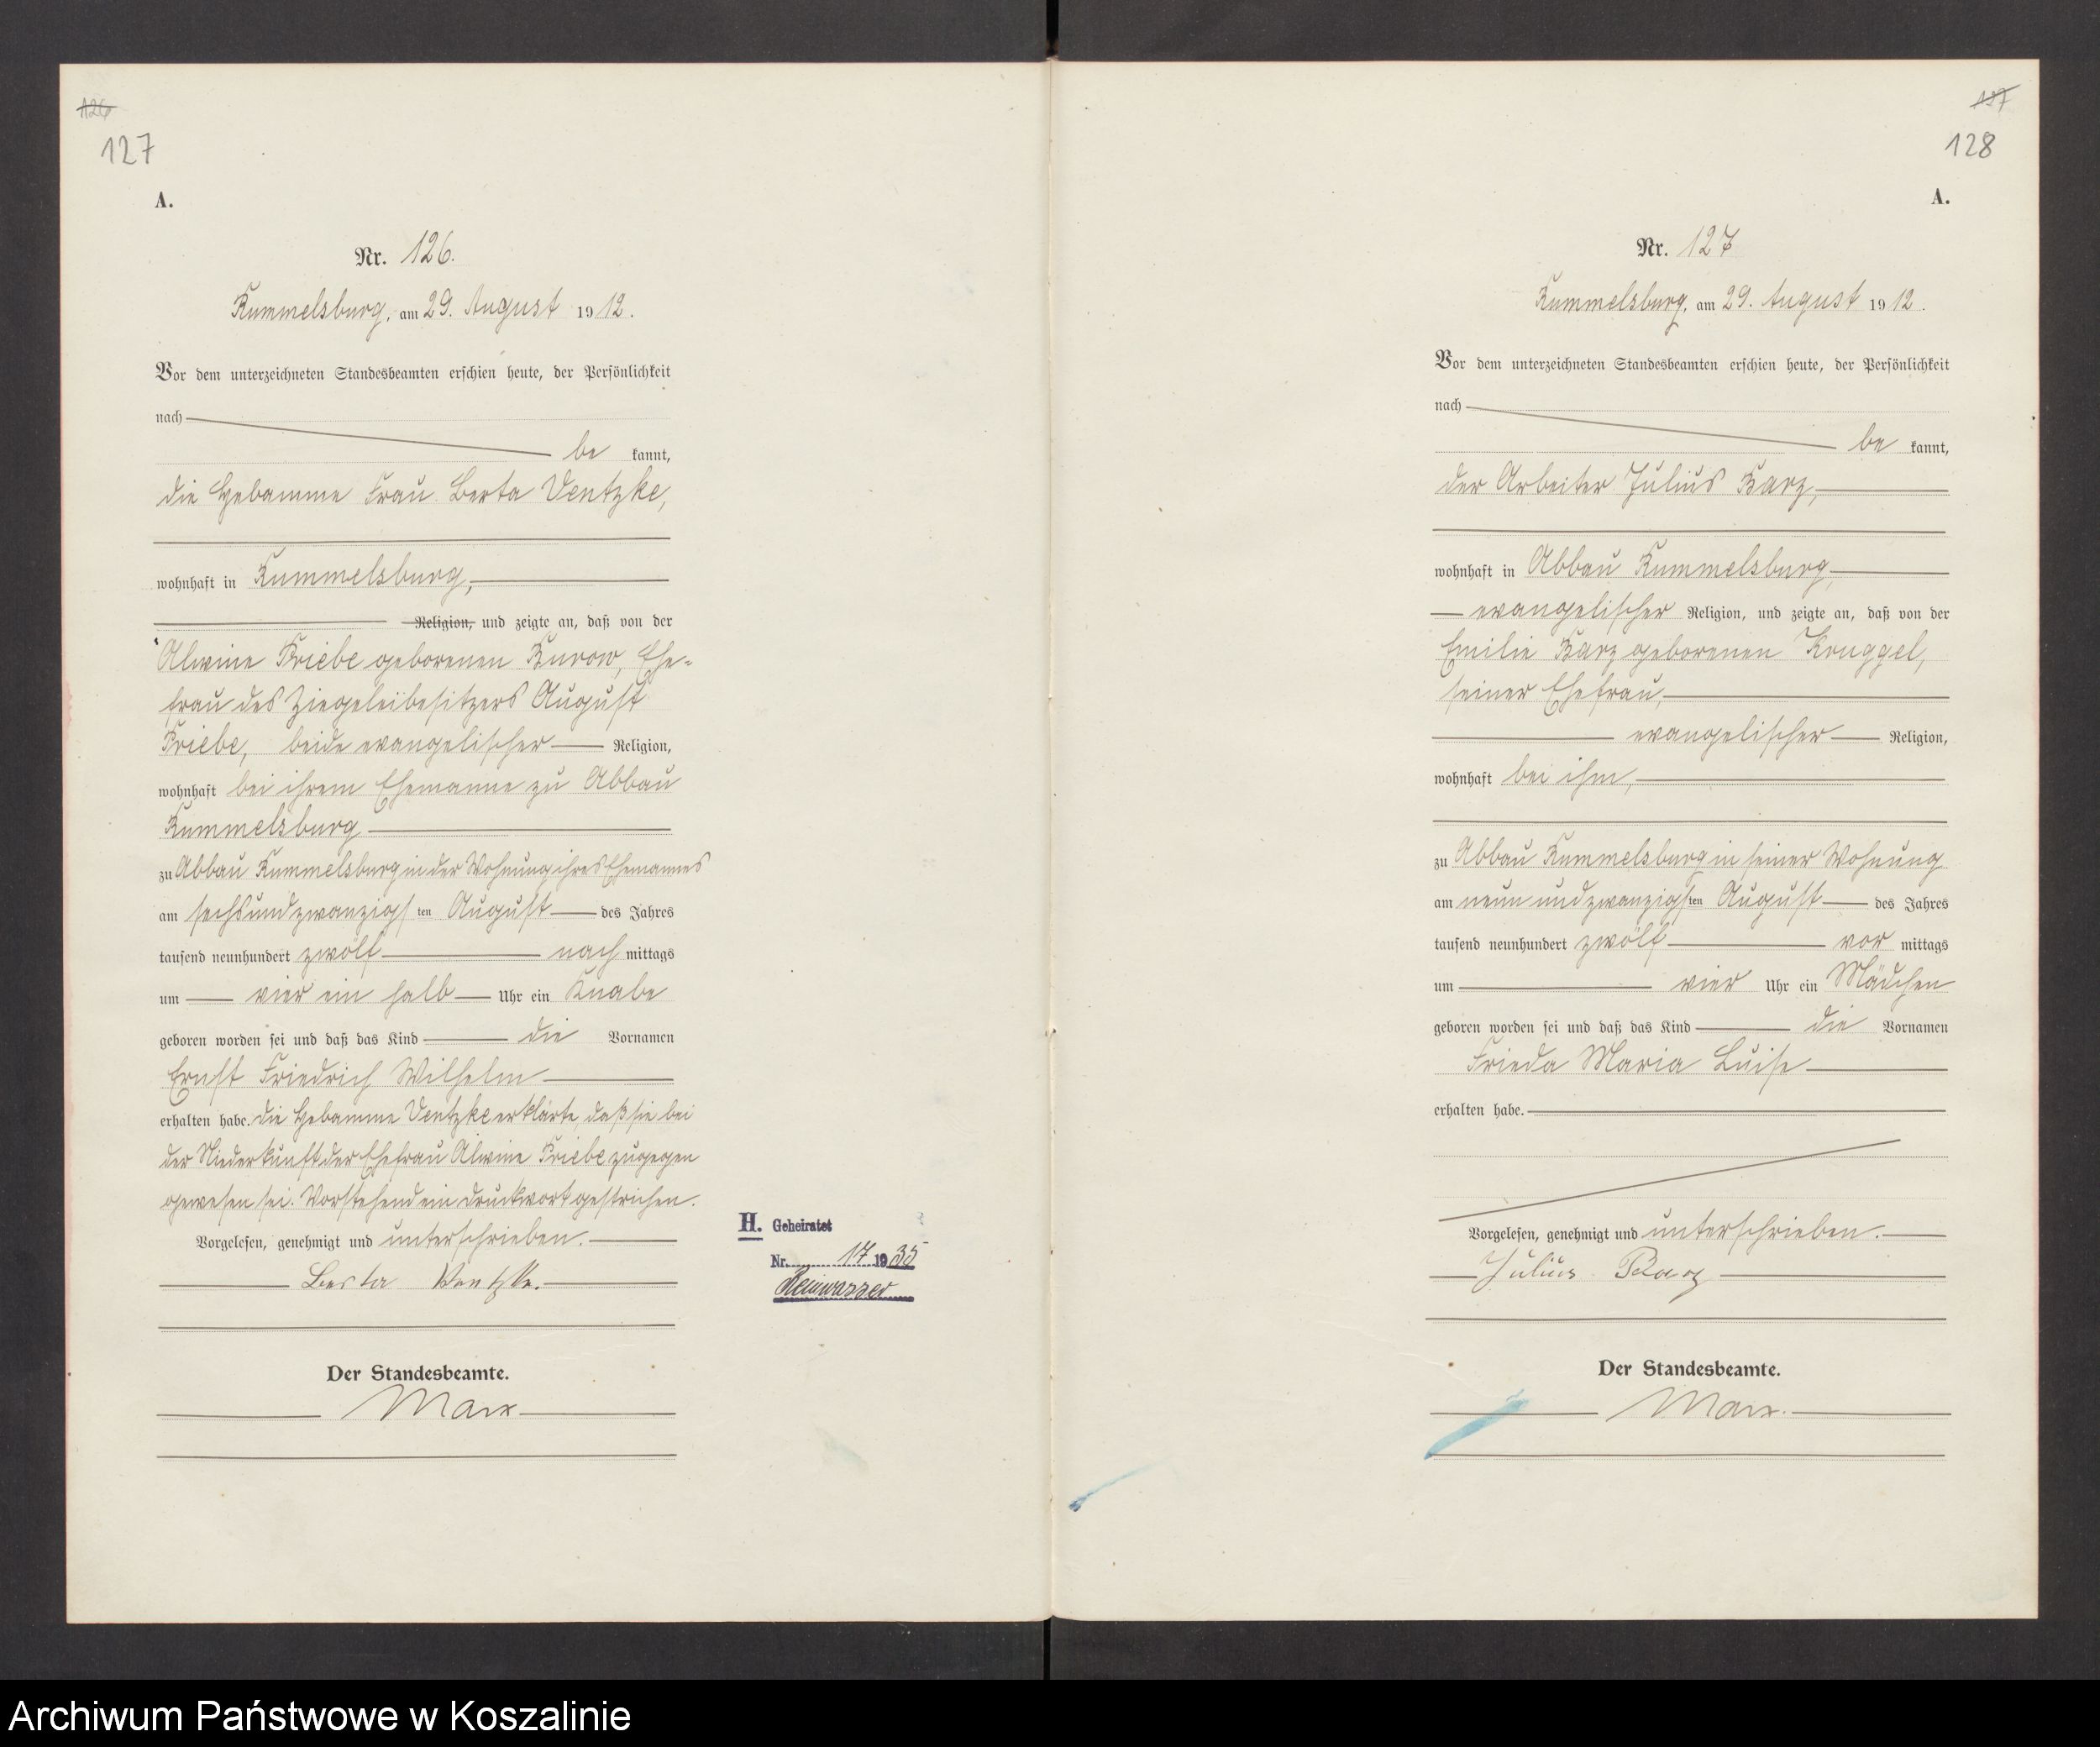 126
127
A.
Nr. 126.
Rummelsburg, am 29. August 1912.
Vor dem unterzeichneten Standesbeamten erschien heute, der Persönlichkeit
nach
be kannt,
die Hebamme Frau Berta Ventzke,
wohnhaft in Rummelsburg,
Religion, und zeigte an, daß von der
Alwine Priebe geborenen Kurow, Ehe-
frau des Ziegeleibesitzers August
Priebe, beide evangelischer Religion,
wohnhaft bei ihrem Ehemanne zu Abbau
Rummelsburg
zu Abbau Rummelsburg in der Wohnung ihres Ehemannes
am sechsundzwanzigsten August des Jahres
tausend neunhundert zwölf nachmittags
um vier ein halb Uhr ein Knabe
geboren worden sei und daß das Kind die Vornamen
Ernst Friedrich Wilhelm
erhalten habe. Die Hebamme Ventzke erklärte, daß sie bei
der Niederkunft der Ehefrau Alwine Priebe zugegen
gewesen sei. Vorstehend ein Druckwort gestrichen.
Vorgelesen, genehmigt und unterschrieben.
Berta Ventzke.
Der Standesbeamte.
Marx
H. Geheiratet
Nr. 17 1935
Reinwasser
127
128
A.
Nr. 127
Rummelsburg, am 29. August 1912.
Vor dem unterzeichneten Standesbeamten erschien heute, der Persönlichkeit
nach
be kannt,
der Arbeiter Julius Barz,
wohnhaft in Abbau Rummelsburg,
evangelischer Religion, und zeigte an, daß von der
Emilie Barz geborenen Kruggel,
seiner Ehefrau,
evangelischer Religion,
wohnhaft bei ihm,
zu Abbau Rummelsburg in seiner Wohnung
am neunundzwanzigsten August des Jahres
tausend neunhundert zwölf vormittags
um vier Uhr ein Mädchen
geboren worden sei und daß das Kind die Vornamen
Frieda Maria Luise
erhalten habe.
Vorgelesen, genehmigt und unterschrieben.
Julius Barz
Der Standesbeamte.
Marx.
Archiwum Państwowe w Koszalinie